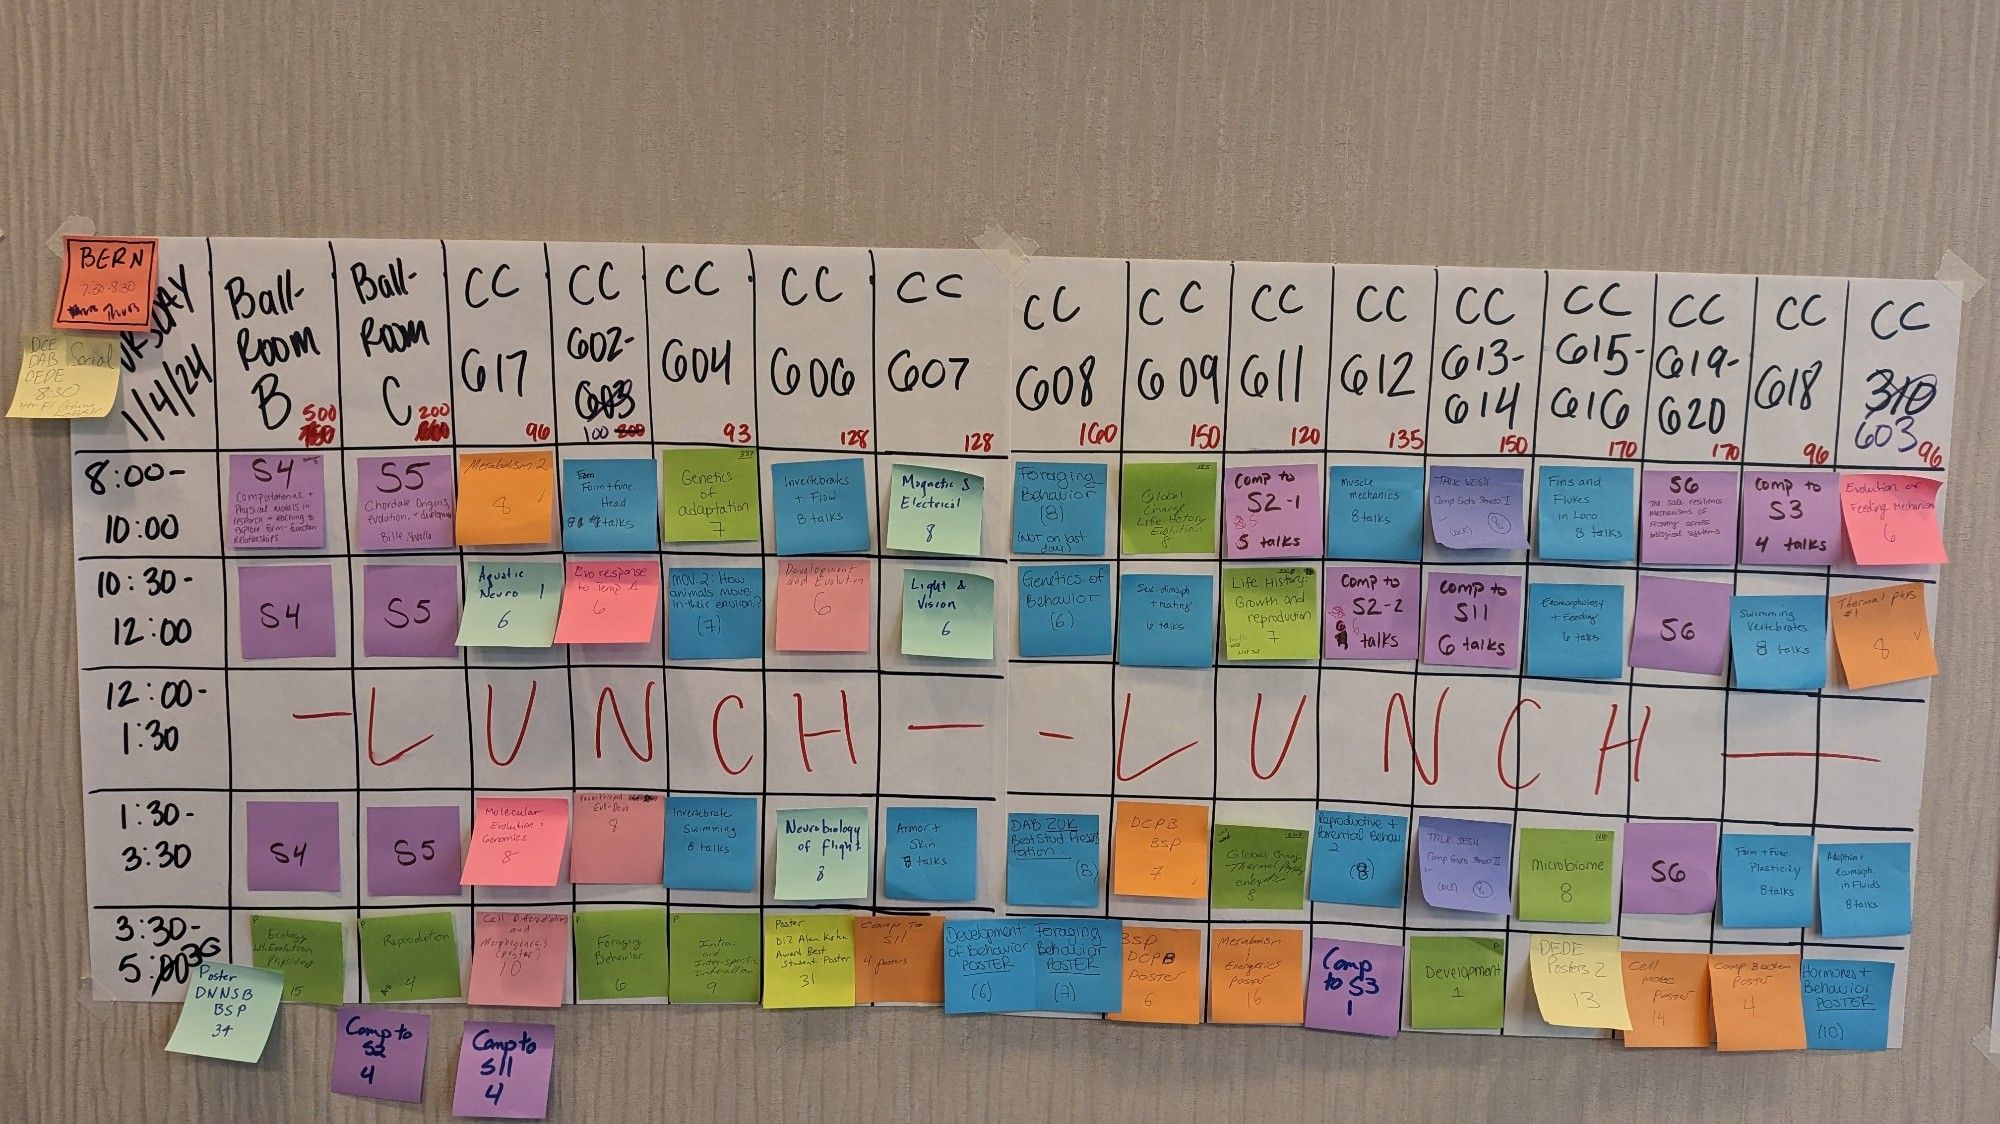 BERN
7:30-8:30
Thurs
DCE
DAB Social
DEDE
8:30
1/4/24
Ball-
Room
B
500
Ball-
Room
C
200
CC
617
96
CC
602-
603
100 200
CC
604
93
CC
606
128
CC
607
128
CC
608
160
CC
609
150
CC
611
120
CC
612
135
CC
613-
614
150
CC
615-
616
170
CC
619-
620
170
CC
618
96
CC
310
603
96
8:00-
10:00
S4
Computational +
Physical models in
research + teaching to
explore form-function
Relationships
S5
Chordate Origins,
evolution, + development
Billie Swalla
Metabolism 2
8
Form + func.
Head
talks
Genetics
of
adaptation
7
Invertebrates
+ Flow
8 talks
Magnetic &
Electrical
8
Foraging
Behavior
(8)
(NOT on last
day)
Global
Change
Life History
Evolution
8
Comp to
S2-1
5 talks
Muscle
mechanics
8 talks
TALK SESH
8
Fins and
Flukes
in Loco
8 talks
S6
The scale resilience:
mechanisms of
recovery across
biological systems
Comp to
S3
4 talks
Evolution of
Feeding Mechanisms
6
10:30-
12:00
S4
S5
Aquatic
Neuro 1
6
Evo response
to Temp Δ
6
MOV. 2: How
animals move
in their environ?
(7)
Development
and Evolution
6
Light &
Vision
6
Genetics of
Behavior
(6)
Sex. dimorph
+ mating
6 talks
Life History:
Growth and
reproduction
7
Comp to
S2-2
talks
Comp to
S11
6 talks
Ecomorphology
+ Feeding
6 talks
S6
Swimming
Vertebrates
8 talks
Thermal phys
#1
8
12:00-
1:30
- LUNCH -
- LUNCH -
1:30-
3:30
S4
S5
Molecular
Evolution +
Genomics
8
Evo-Devo
8
Invertebrate
Swimming
8 talks
Neurobiology
of flight
8
Armor +
Skin
8 talks
DAB ZUK
Best Stud. Presen-
tation
(8)
DCPB
BSP
7
Global Chang.
Thermal Phys
8
Reproductive +
Parental Behav.
2
(8)
TALK SESH
8
Microbiome
8
S6
Form + Func
Plasticity
8 talks
Adaption +
Ecomorph.
in Fluids
8 talks
3:30-
5:30
P
Ecology
15
P
Reproduction
4
Cell Differentiation
and
Morphogenesis
10
P
Foraging
Behavior
6
P.
Intra-
and
Inter-specific
Interaction
9
Poster
DIZ Alan Kohn
Award Best
Student Poster
31
Comp to
S11
4 posters
Development
of Behavior
POSTER
(6)
Foraging
Behavior
POSTER
(7)
BSP
DCPB
Poster
6
Metabolism
+
Energetics
poster
16
Comp
to S3
1
P
Development
1
DEDE
Posters 2
13
Cell
Molec
Poster
14
Poster
4
Hormones +
Behavior
POSTER
(10)
Poster
DNNSB
BSP
34
Comp to
S2
4
Comp to
S11
4